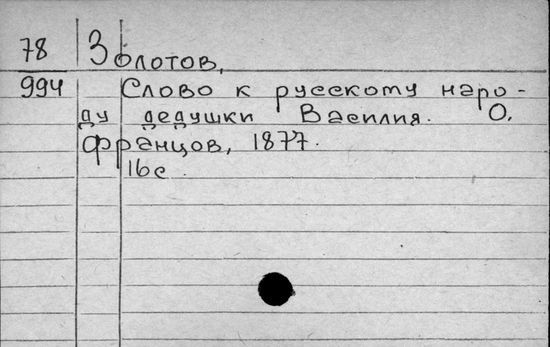 78 Золотов,
994 Слово к русскому наро-
ду дедушки Василия. О.
Францов, 1877.
16с.